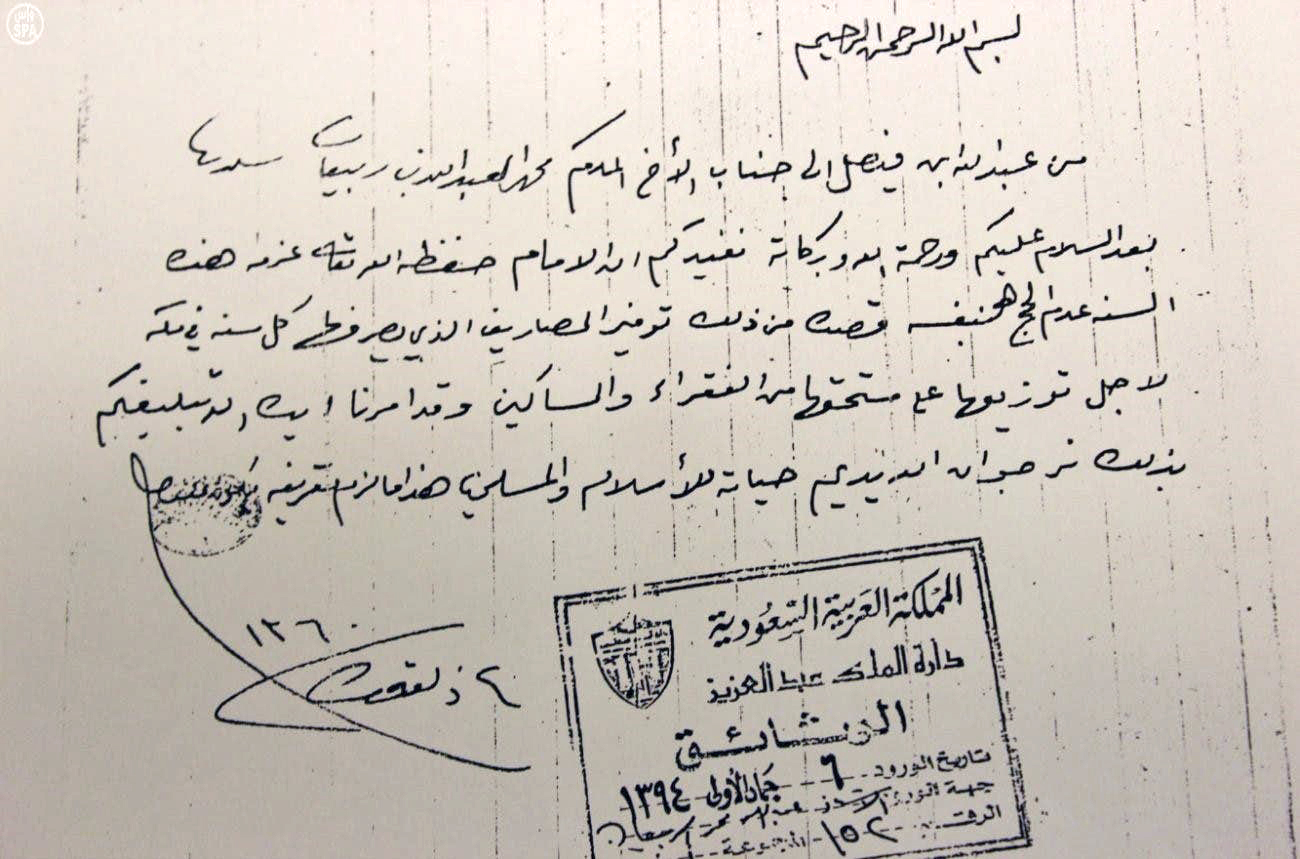 واس
SPA
بسم الله الرحمن الرحيم
من عبدالله ابن فيصل الى جناب الأخ المكرم محمد العبدالله بن ربيعان سلمه
بعد السلام عليكم ورحمة الله وبركاته نفيدكم ان الامام حفظه الله تعالى عزمه هذه
السنه عدم الحج بنفسه قصده من ذلك توفير المصاريف الذي يصرفها كل سنه في مكه
لاجل توزيعها على مستحقها من الفقراء والمساكين وقد امرنا ايده الله تبليغكم
بذلك نرجو ان الله يديم حياته للأسلام والمسلمين هذا مالزم تعريفه
١٣٦٠
٢ ذلقعدة
المملكة العربية السعودية
دارة الملك عبد العزيز
الوثائق
تاريخ الورود ٦ جماد الأولى ١٣٩٤
جهة الورود
الرقم ١٥٢ المجموعة